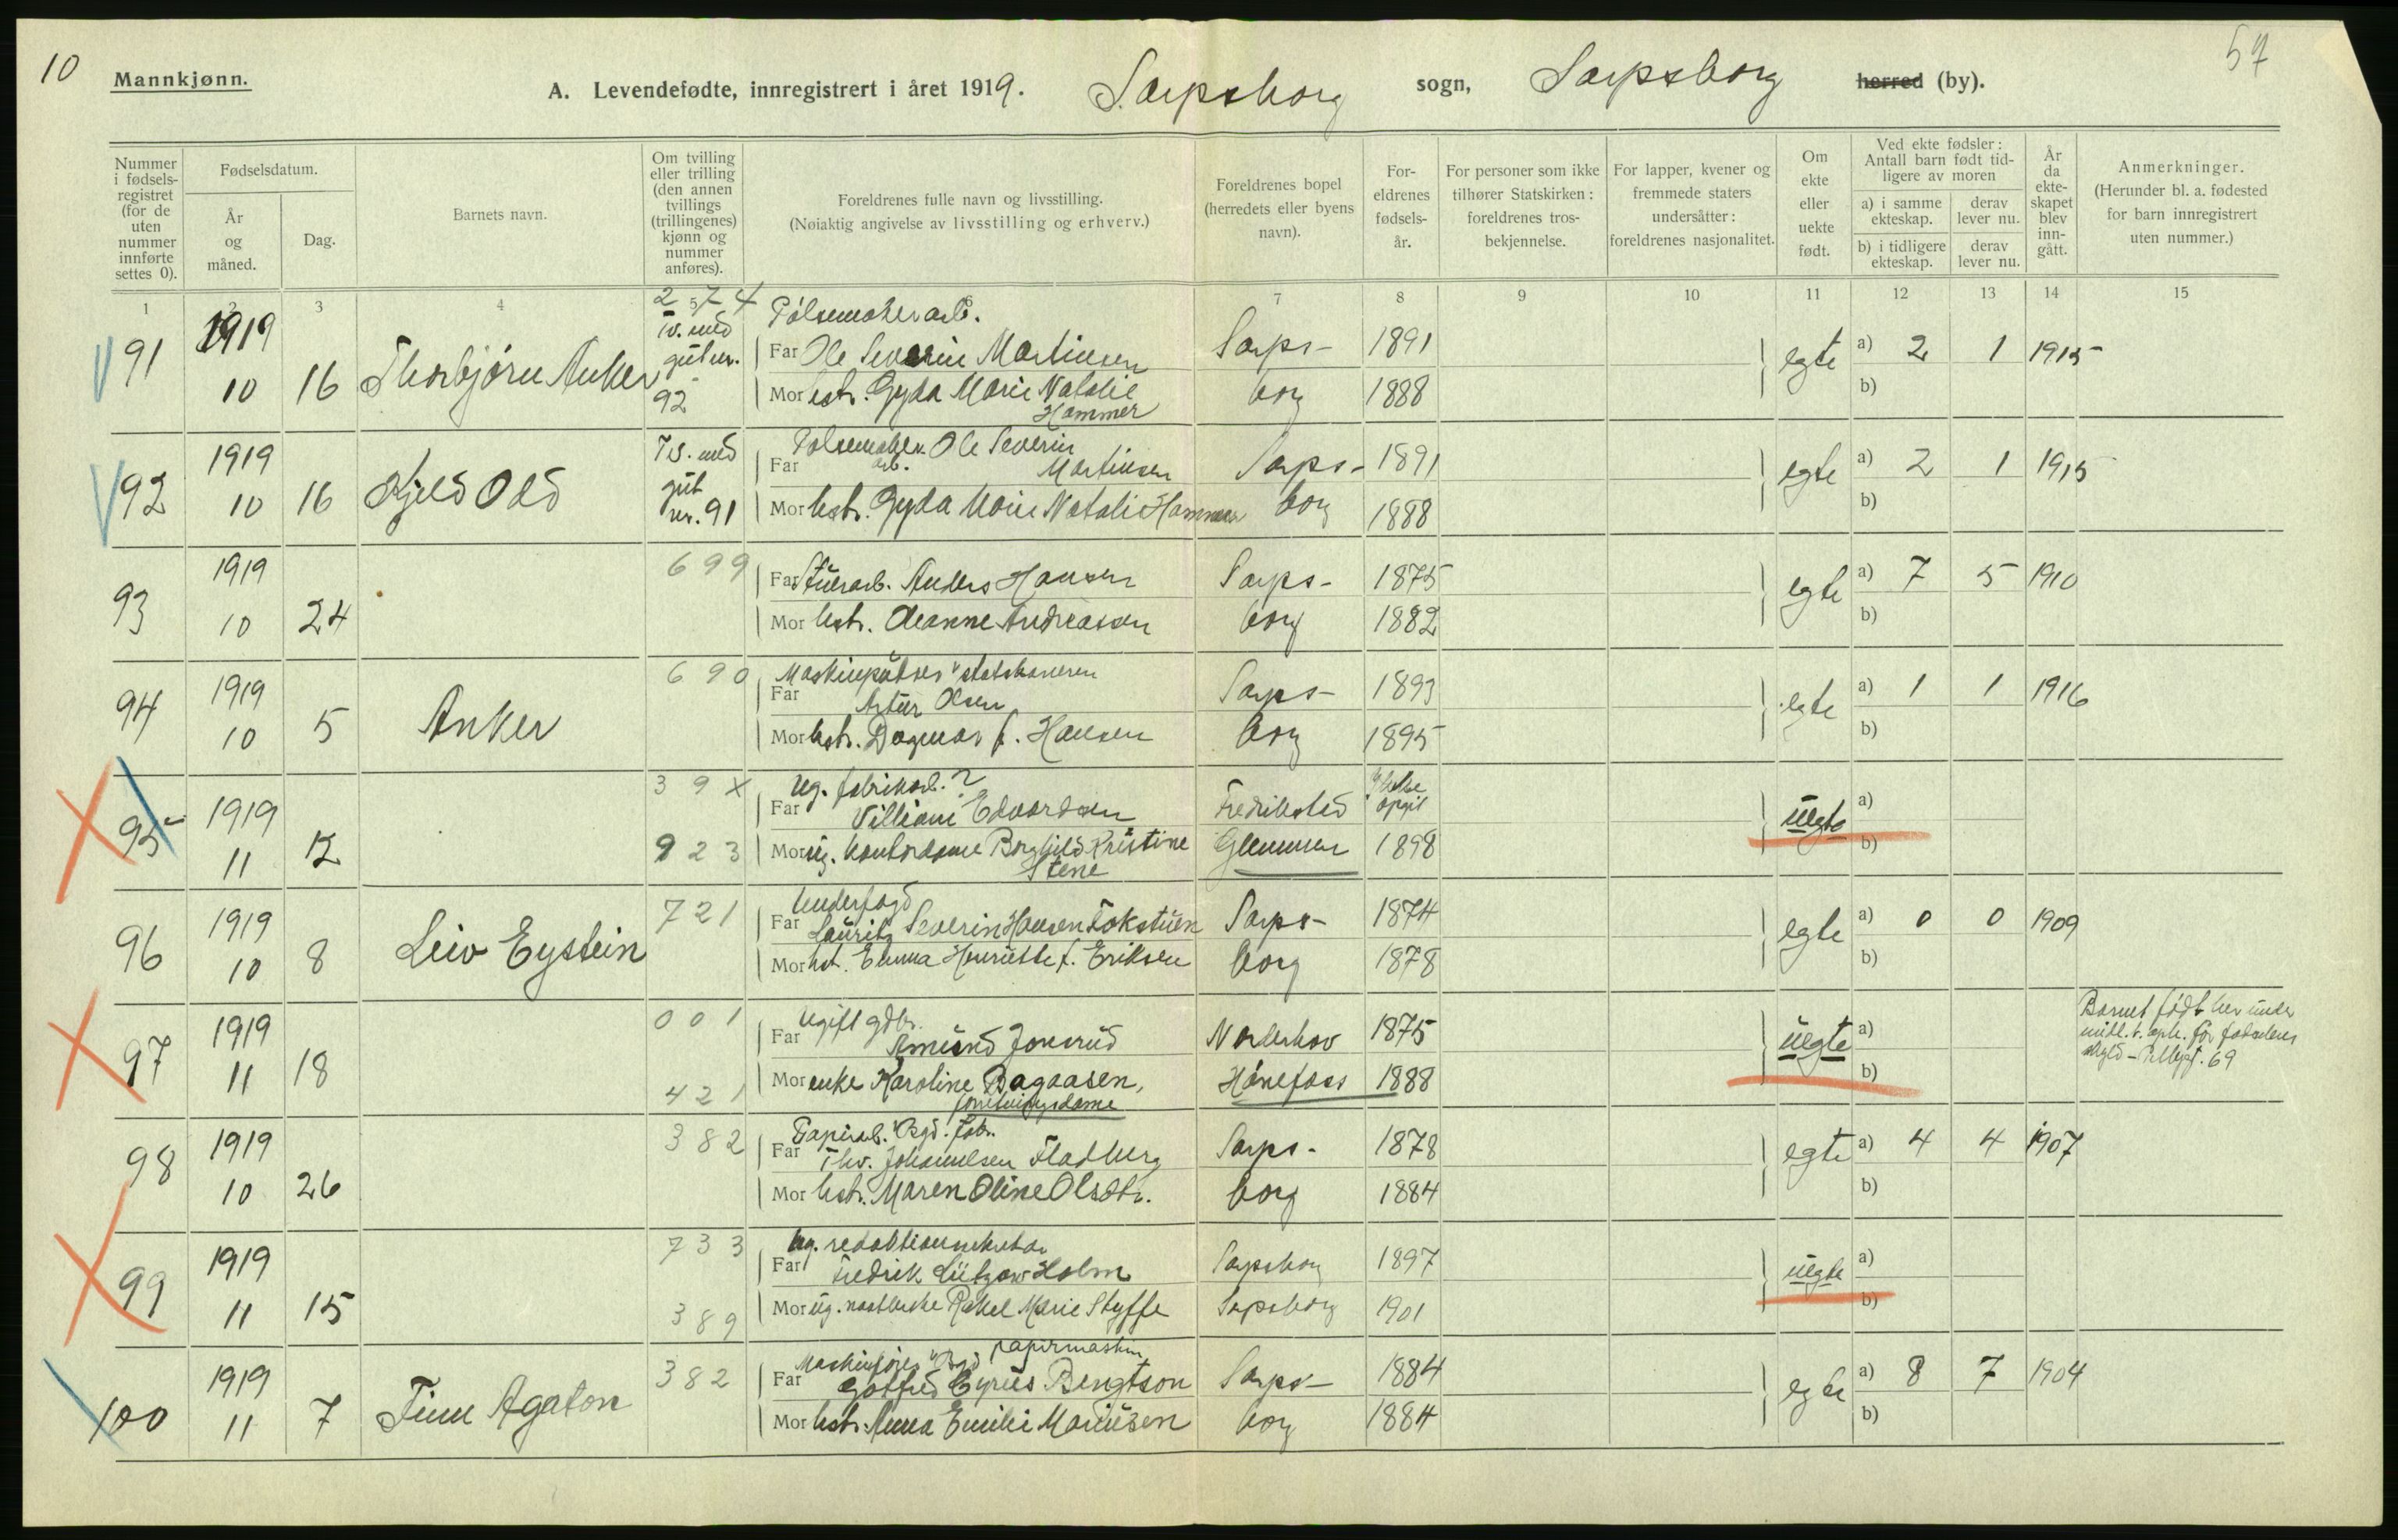 10
57
Mannkjønn.
A. Levendefødte, innregistrert i året 1919. Sarpsborg sogn, Sarpsborg herred (by).
Nummer i fødsels-registret (for de uten nummer innførte settes 0).
Fødselsdatum.
År og måned.
Dag.
Barnets navn.
Om tvilling eller trilling (den annen tvillings (trillingenes) kjønn og nummer anføres).
Foreldrenes fulle navn og livsstilling.
(Nøiaktig angivelse av livsstilling og erhverv.)
Foreldrenes bopel (herredets eller byens navn).
For-eldrenes fødsels-år.
For personer som ikke tilhører Statskirken: foreldrenes tros-bekjennelse.
For lapper, kvener og fremmede staters undersåtter: foreldrenes nasjonalitet.
Om ekte eller uekte født.
Ved ekte fødsler: Antall barn født tid-ligere av moren
a) i samme ekteskap.
derav lever nu.
b) i tidligere ekteskap.
derav lever nu.
År da ekte-skapet blev inn-gått.
Anmerkninger.
(Herunder bl. a. fødested for barn innregistrert uten nummer.)
1 2 3 4 5 6 7 8 9 10 11 12 13 14 15
2 7 4 Pølsemakerarb.
91 1919 Tv. med gut nr. 92 Far Ole Severin Martinsen Sarps- 1891 egte a) 2 1 1915
10 16 Thorbjørn Anker Mor hstr. Gyda Marie Natalie Hammer borg 1888 b)
92 1919 Tv. med gut nr. 91 Pølsemaker arb. Far Ole Severin Martinsen Sarps- 1891 egte a) 2 1 1915
10 16 Kjeld Odd Mor hstr. Gyda Marie Natalie Hammer borg 1888 b)
93 1919 699 Far Stuerarb. Anders Hansen Sarps- 1875 egte a) 7 5 1910
10 24 Mor hstr. Oleanne Andreasen borg 1882 b)
690 Maskinpudser v statsbanerne
94 1919 Far Artur Olsen Sarps- 1893 egte a) 1 1 1916
10 5 Anker Mor hstr. Dagmar f. Hansen borg 1895 b)
39X Ug. fabrikarb.?
95 1919 Far Villiam Edvardsen Fredrikstad opgit uegte a)
11 12 923 Mor ug. kontordame Borghild Kristine Stene Glemmen 1898 b)
721 Underfogd
96 1919 Far Lauritz Severin Hansen Fokstuen Sarps- 1874 egte a) 0 0 1909
10 8 Leiv Eystein Mor hst. Emma Henriette f. Eriksen borg 1878 b)
001 Ugift gdbr.
97 1919 Far Amund Jonsrud Norderhov 1875 uegte a) Barnet født her under
11 18 421 Mor enke Karoline Bagaasen, forretningsdame Hønefoss 1888 b) 69
382 Papirarb. Bgd. Fabr.
98 1919 Far Thv. Johannesen Fladberg Sarps- 1878 egte a) 4 4 1907
10 26 Mor hstr. Maren Oline Olsdtr. borg 1884 b)
733 Ug. redaktionssekretær
99 1919 Far Fredrik Lützow Holm Sarpsborg 1897 uegte a)
11 15 389 Mor ug. Rakel Marie Styffe Sarpsborg 1901 b)
382 Maskinfører v Bgd papirmaskin
100 1919 Far Gotfred Cyrus Bengtson Sarps- 1884 egte a) 8 7 1904
11 7 Finn Agaton Mor hstr. Anna Emilie Mariusen borg 1884 b)